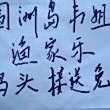 洲岛韦姐
渔家乐
码头接送免